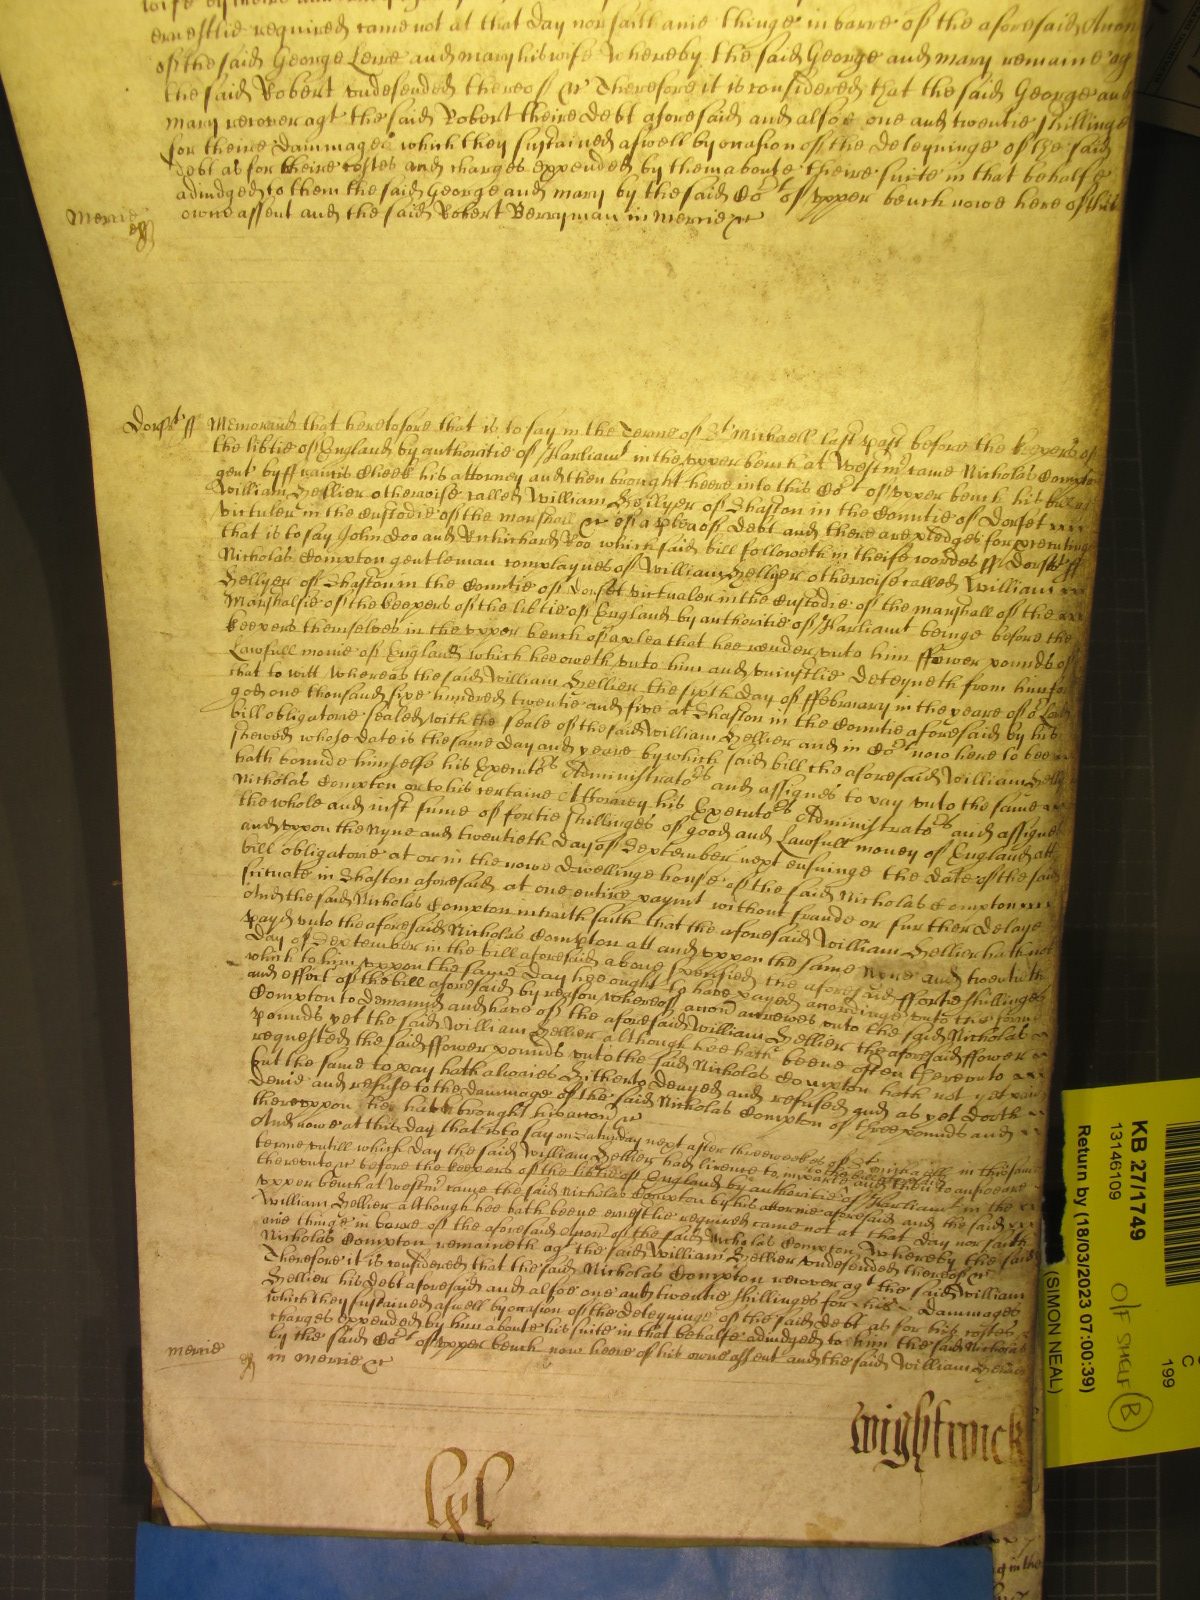 ernestlie required came not at that day nor saith anie thinge in barre of the aforesaid Accon
of the said George Lewe and Mary his wife Whereby the said George and Mary remaine ag
the said Robert undefended thereof &c Therefore it is considered that the said George and
Mary recover agt the said Robert theire Debt aforesaid and alsoe one and twentie shillinge
for theire Dammages which they sustained aswell by occasion of the Deteyninge of the said
debt as for theire costes and charges expended by them aboute theire suite in that behalfe
adiudged to them the said George and Mary by the said Cort of upper bench nowe here of their
owne assent and the said Robert Berryman in Mercie &c
Mercie
Dorst ss Memorand that heretofore that is to say in the Terme of St Michaell last past before the keepers of
the libtie of England by authoritie of Parliamt in the upper bench at Westmr came Nicholas Compton
gent by ffrancis Cheeke his attorney and then brought heere into this Cort of upper bench his bill agt
William Hellier otherwise called William Hellyer of Shaston in the Countie of Dorset
victuler in the custodie of the marshall &c of a plea of Debt and there are pledges for prosecutinge
that is to say John Doo and Richard Roo which said bill followeth in theise wordes ss Dorst ss
Nicholas Compton gentleman complaynes of William Hellyer otherwise called William
Hellyer of Shaston in the Countie of Dorset victualer in the Custodie of the marshall of the
Marshalsie of the keepers of the libtie of England by authoritie of Parliamt beinge before the
keepers themselves in the upper bench of a plea that hee render unto him ffower pounds of
Lawfull monie of England which hee oweth unto him and uniustlie deteyneth from him for
that to witt Whereas the said William Hellier the sixth day of ffebruary in the yeare of or Lord
god one thousand sixe hundred twentie and five at Shaston in the Countie aforesaid by his
bill obligatorie sealed with the seale of the said William Hellier and in Cort now here to bee
shewed whose date is the same day and yeare by which said bill the aforesaid William Hellier
hath bounde himselfe his Executors Administrators and assignes to pay unto the same
Nicholas Compton or to his certaine Attorney his Executors Administrators and assignes
the whole and iust sume of fortie shillinges of good and Lawfull money of England att
and uppon the Nyne and twentieth day of September next ensuinge the date of the said
bill obligatorie at or in the nowe Dwellinge house of the said Nicholas Compton
scituate in Shaston aforesaid at one entire paymt without fraude or further Delaye
And the said Nicholas Compton in faith saith that the aforesaid William Hellier hath not
payd unto the aforesaid Nicholas Compton att and uppon the same Nyne and twentieth
day of September in the bill aforesaid above specified the aforesaid ffortie shillinges
which to him uppon the same day hee ought to have payed accordinge unto the forme
and effect of the bill aforesaid by reason whereof accon accrewes unto the said Nicholas
Compton to demand and have of the aforesaid William Hellier the aforesaid ffower
pounds yet the said William Hellier although hee hath beene often thereunto
requested the said ffower pounds unto the said Nicholas Compton hath not yet paid
but the same to pay hath alwaies hitherto Denyed and refused and as yet doth
Denie and refuse to the dammage of the said Nicholas Compton of three pounds and
thereuppon hee hath brought his accon &c
And nowe at this day that is to say on Saturday next after three weekes of St Michaell in this same
terme untill which day the said William Hellier had licence to imparle and then to answeare
thereunto &c before the keepers of the libtie of England by authoritie of Parliamt in the
upper bench at Westmr came the said Nicholas Compton by his attornie aforesaid and the said
William Hellier although hee hath beene ernestlie required came not at that day nor saith
anie thinge in barre of the aforesaid Accon of the said Nicholas Compton Whereby the said
Nicholas Compton remaineth agt the said William Hellier undefended thereof &c
Therefore it is considered that the said Nicholas Compton recover agt the said William
Hellier his Debt aforesaid and alsoe one and twentie shillinges for his Dammages
which they sustained aswell by occasion of the deteyninge of the said debt as for his costes
charges expended by him aboute his suite in that behalfe adiudged to him the said Nicholas
by the said Cort of upper bench now heere of his owne assent and the said William Hellier
mercie in Mercie &c
Wightwick
KB 27/1749
13146109
Return by (18/03/2023 07:00:39)
(SIMON NEAL)
O/F SHELF B
C
199